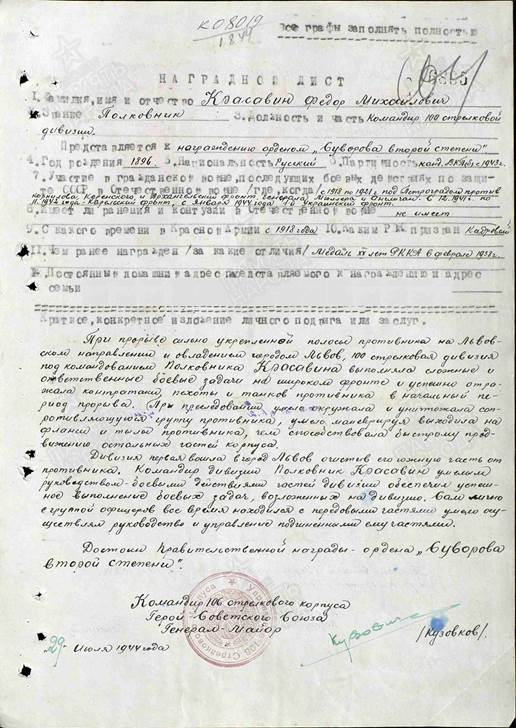 к0809
1844
Все графы заполнять полностью
НАГРАДНОЙ ЛИСТ
1. Фамилия, имя и отчество Красавин Федор Михайлович
2. Звание Полковник 3. Должность и часть Командир 100 стрелковой
дивизии.
Представляется к награждению орденом „Суворова второй степени"
4. Год рождения 1896. 5. Национальность Русский 6. Партийность канд. ВКП(б) с 1943г.
7. Участие в гражданской войне, последующих боевых действиях по защи-
те СССР в Отечественной войне /где, когда/ с 1918 по 1921г. под Острогардом против
Корнилова, Каменского, и Архангельский фронт, генерала Миллера и англичан. С 12.1941г. по
11.1942 года - Карельский фронт, с января 1944 года 1й украинский фронт.
8. Имеет ли ранения и контузии в Отечественной войне не имеет
9. С какого времени в Красной Армии с 1918 года 10. Каким РВК призван Кадровый
11. Чем ранее награжден /за какие отличия/ Медаль XX лет РККА в феврале 1938г.
12. Постоянный домашний адрес представляемого к награждению и адрес
семьи
Краткое, конкретное изложение личного подвига или заслуг.
При прорыве сильно укрепленной полосы противника на Львов-
ском направлении и овладением городом Львов, 100 стрелковая дивизия
под командованием Полковника Красавина выполняла сложные и
ответственные боевые задачи на широком фронте и успешно отра-
жала контратаки, пехоты и танков противника в начальный пе-
риод прорыва. При преследовании умело окружала и уничтожала со-
противляющуюся группу противника, умело маневрируя выходила на
фланги и тылы противника, чем способствовала быстрому прод-
вижению остальных частей корпуса.
Дивизия первая вошла в город Львов очистив его южную часть от
противника. Командир дивизии Полковник Красавин умелым
руководством-боевыми действиями частей дивизии обеспечил успеш-
ное выполнение боевых задач, возложенных на дивизию. Сам лично
с группой офицеров все время находился с передовыми частями умело осу-
ществлял руководство и управление подчиненными ему частями.
Достоин Правительственной награды - ордена „Суворова
второй степени".
Командир 106 стрелкового корпуса
Герой Советского Союза
Генерал-Майор
/Кузовков/.
29 Июля 1944 года